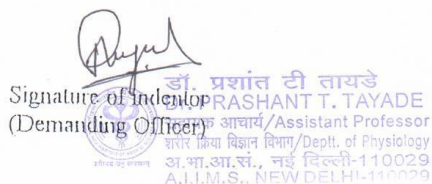 Signature of Indentor
(Demanding Officer)
डॉ. प्रशांत टी तायडे
DR. PRASHANT T. TAYADE
सहायक आचार्य/Assistant Professor
शरीर क्रिया विज्ञान विभाग/Deptt. of Physiology
अ.भा.आ.सं., नई दिल्ली-110029
A.I.I.M.S., NEW DELHI-110029